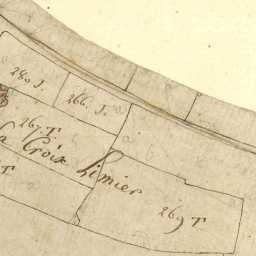 280 J.
266. J.
267. T
la Croix Limier
269 T